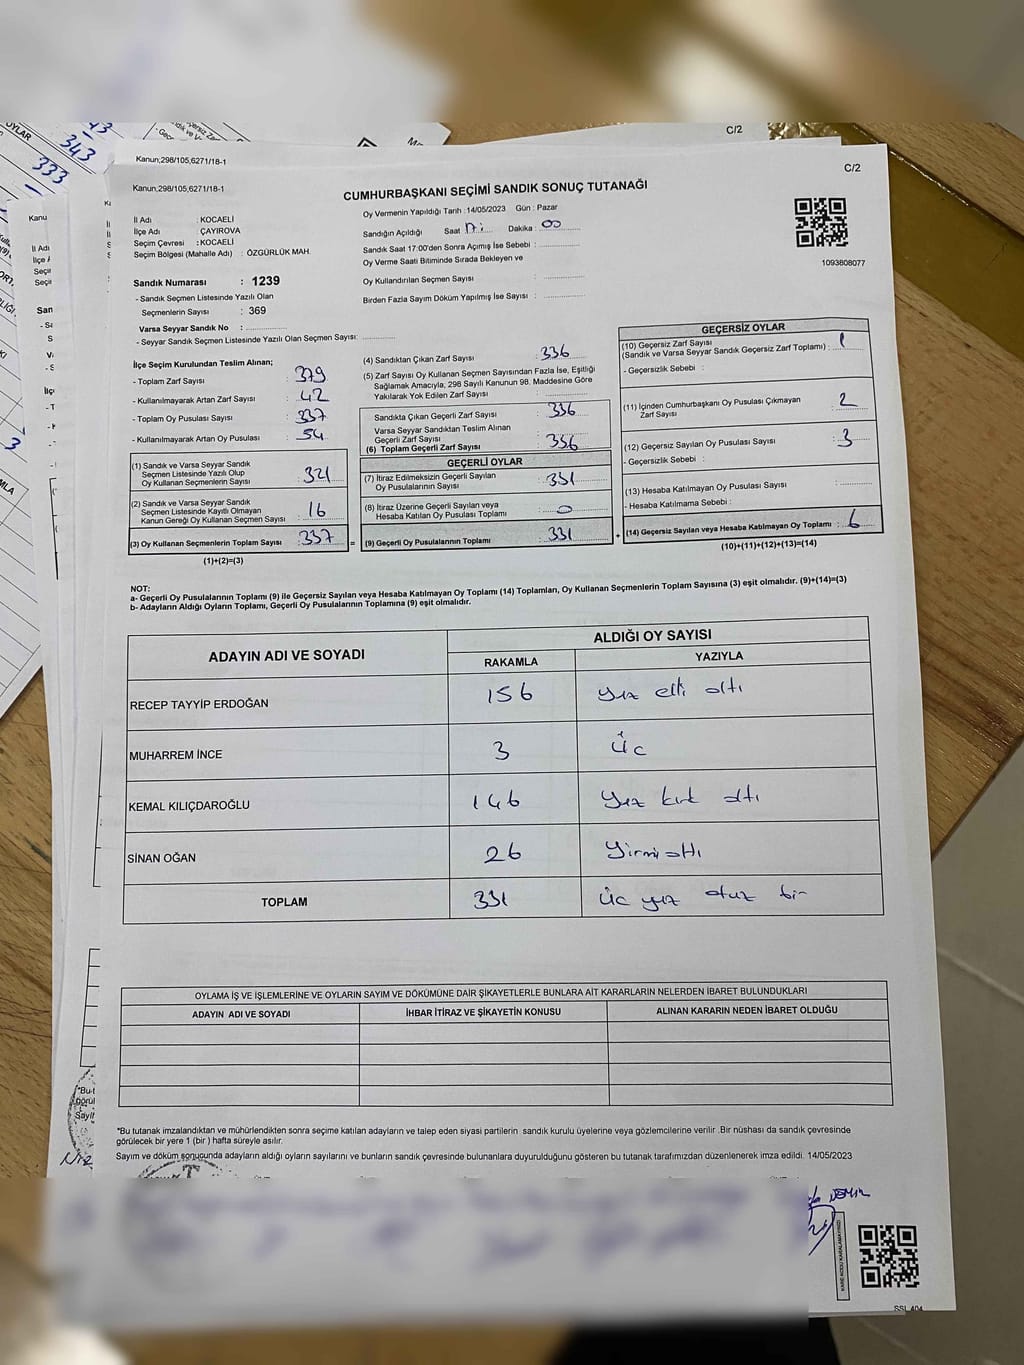 OYLAR
343
333
C/2
Kanun;298/105,6271/18-1
Kanun;298/105,6271/18-1
C/2
CUMHURBAŞKANI SEÇİMİ SANDIK SONUÇ TUTANAĞI
İl Adı : KOCAELİ
İlçe Adı : ÇAYIROVA
Seçim Çevresi : KOCAELİ
Seçim Bölgesi (Mahalle Adı) : ÖZGÜRLÜK MAH.
Sandık Numarası : 1239
- Sandık Seçmen Listesinde Yazılı Olan
Seçmenlerin Sayısı : 369
Varsa Seyyar Sandık No :
- Seyyar Sandık Seçmen Listesinde Yazılı Olan Seçmen Sayısı:
Oy Vermenin Yapıldığı Tarih : 14/05/2023 Gün : Pazar
Sandığın Açıldığı Saat 17: Dakika : 00
Sandık Saat 17:00'den Sonra Açımış İse Sebebi :
Oy Verme Saati Bitiminde Sırada Bekleyen ve
Oy Kullandırılan Seçmen Sayısı :
Birden Fazla Sayım Döküm Yapılmış İse Sayısı :
1093808077
İlçe Seçim Kurulundan Teslim Alınan;
- Toplam Zarf Sayısı : 379
- Kullanılmayarak Artan Zarf Sayısı : 42
- Toplam Oy Pusulası Sayısı : 337
- Kullanılmayarak Artan Oy Pusulası : 54
(1) Sandık ve Varsa Seyyar Sandık
Seçmen Listesinde Yazılı Olup
Oy Kullanan Seçmenlerin Sayısı : 321
(2) Sandık ve Varsa Seyyar Sandık
Seçmen Listesinde Kayıtlı Olmayan
Kanun Gereği Oy Kullanan Seçmen Sayısı : 16
(3) Oy Kullanan Seçmenlerin Toplam Sayısı : 337 =
(1)+(2)=(3)
(4) Sandıktan Çıkan Zarf Sayısı : 336
(5) Zarf Sayısı Oy Kullanan Seçmen Sayısından Fazla İse, Eşitliği
Sağlamak Amacıyla, 298 Sayılı Kanunun 98. Maddesine Göre
Yakılarak Yok Edilen Zarf Sayısı :
Sandıkta Çıkan Geçerli Zarf Sayısı : 336
Varsa Seyyar Sandıktan Teslim Alınan
Geçerli Zarf Sayısı
(6) Toplam Geçerli Zarf Sayısı : 336
GEÇERLİ OYLAR
(7) İtiraz Edilmeksizin Geçerli Sayılan
Oy Pusulalarının Sayısı : 331
(8) İtiraz Üzerine Geçerli Sayılan veya
Hesaba Katılan Oy Pusulası Toplamı : 0
(9) Geçerli Oy Pusulalarının Toplamı : 331 +
GEÇERSİZ OYLAR
(10) Geçersiz Zarf Sayısı
(Sandık ve Varsa Seyyar Sandık Geçersiz Zarf Toplamı) : 1
- Geçersizlik Sebebi :
(11) İçinden Cumhurbaşkanı Oy Pusulası Çıkmayan
Zarf Sayısı : 2
(12) Geçersiz Sayılan Oy Pusulası Sayısı : 3
- Geçersizlik Sebebi :
(13) Hesaba Katılmayan Oy Pusulası Sayısı :
- Hesaba Katılmama Sebebi :
(14) Geçersiz Sayılan veya Hesaba Katılmayan Oy Toplamı : 6
(10)+(11)+(12)+(13)=(14)
NOT:
a- Geçerli Oy Pusulalarının Toplamı (9) ile Geçersiz Sayılan veya Hesaba Katılmayan Oy Toplamı (14) Toplamları, Oy Kullanan Seçmenlerin Toplam Sayısına (3) eşit olmalıdır. (9)+(14)=(3)
b- Adayların Aldığı Oyların Toplamı, Geçerli Oy Pusulalarının Toplamına (9) eşit olmalıdır.
ADAYIN ADI VE SOYADI ALDIĞI OY SAYISI
RAKAMLA YAZIYLA
RECEP TAYYİP ERDOĞAN 156 yüz elli altı
MUHARREM İNCE 3 üç
KEMAL KILIÇDAROĞLU 146 yüz kırk altı
SİNAN OĞAN 26 Yirmi altı
TOPLAM 331 üç yüz otuz bir
OYLAMA İŞ VE İŞLEMLERİNE VE OYLARIN SAYIM VE DÖKÜMÜNE DAİR ŞİKAYETLERLE BUNLARA AİT KARARLARIN NELERDEN İBARET BULUNDUKLARI
ADAYIN ADI VE SOYADI İHBAR İTİRAZ VE ŞİKAYETİN KONUSU ALINAN KARARIN NEDEN İBARET OLDUĞU
*Bu tutanak imzalandıktan ve mühürlendikten sonra seçime katılan adayların ve talep eden siyasi partilerin sandık kurulu üyelerine veya gözlemcilerine verilir .Bir nüshası da sandık çevresinde
görülecek bir yere 1 (bir ) hafta süreyle asılır.
Sayım ve döküm sonucunda adayların aldığı oyların sayılarını ve bunların sandık çevresinde bulunanlara duyurulduğunu gösteren bu tutanak tarafımızdan düzenlenerek imza edildi. 14/05/2023
KARE KODU KARALAMAYINIZ!
SSI_404